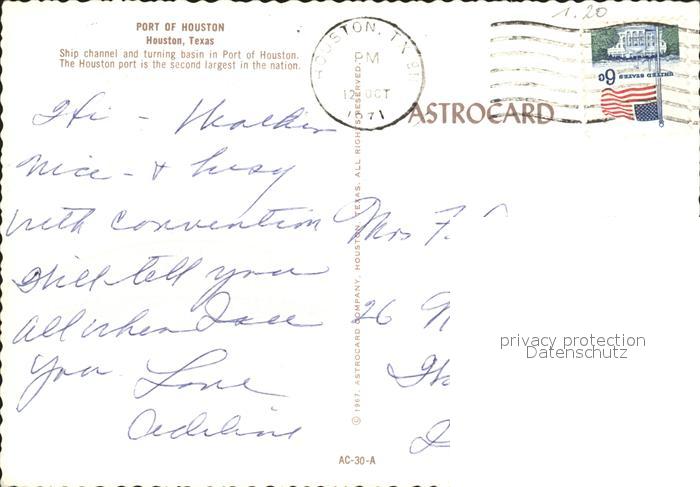 1.20
PORT OF HOUSTON
Houston, Texas
Ship channel and turning basin in Port of Houston.
The Houston port is the second largest in the nation.
HOUSTON, TX
PM
12 OCT
1971
6c
UNITED STATES
ASTROCARD
Hi - Weather
nice - & busy
with convention
Will tell you
all when I see
you. Love
Adeline
Mrs F.
26
© 1967, ASTROCARD COMPANY, HOUSTON, TEXAS. ALL RIGHTS RESERVED.
AC-30-A
privacy protection
Datenschutz